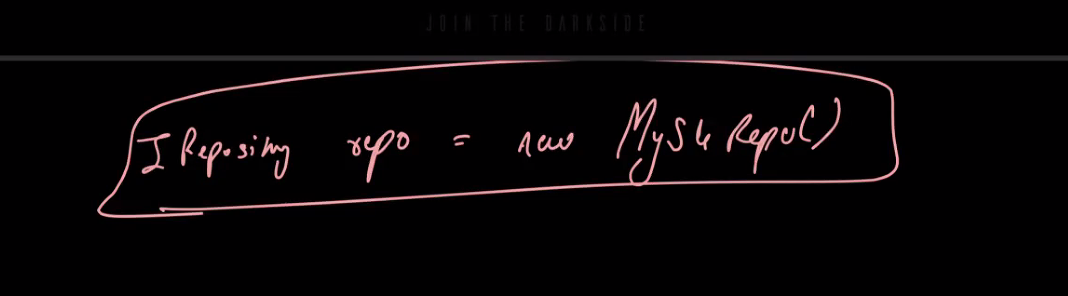 JOIN THE DARKSIDE
IRepository repo = new MySqlRepo()